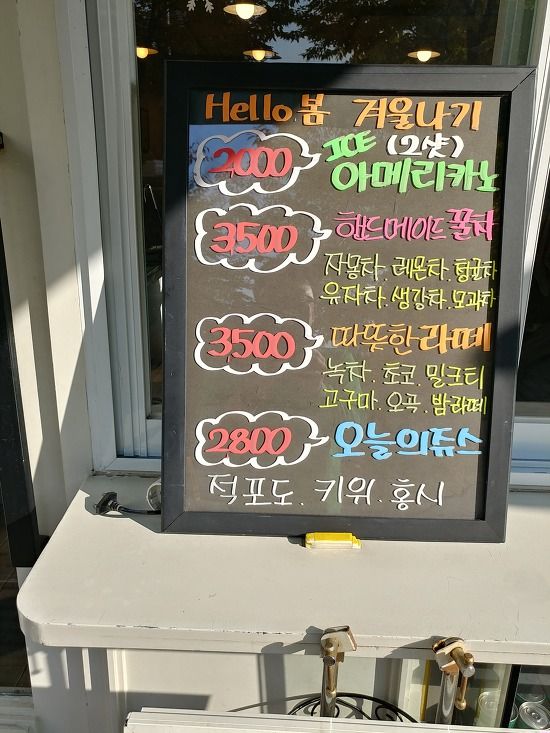 Hello 봄 겨울나기
2000 ICE (2샷)
아메리카노
3500 핸드메이드 꿀차
자몽차. 레몬차. 청귤차
유자차. 생강차. 모과차
3,500 따뜻한 라떼
녹차. 초코. 밀크티
고구마. 오곡. 밤라떼
2800 오늘의쥬스
적포도. 키위. 홍시